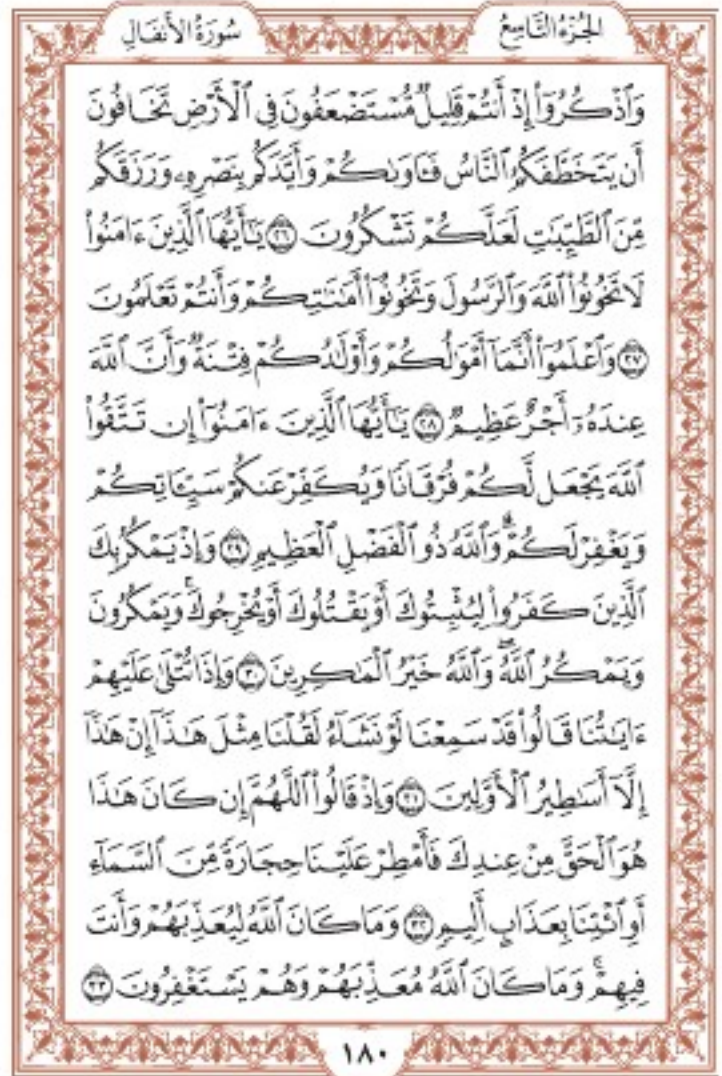 الجُزْءُ التَّاسِعُ
سُورَةُ الأَنفَالِ
وَٱذْكُرُوٓا۟ إِذْ أَنتُمْ قَلِيلٌ مُّسْتَضْعَفُونَ فِى ٱلْأَرْضِ تَخَافُونَ
أَن يَتَخَطَّفَكُمُ ٱلنَّاسُ فَـَٔاوَىٰكُمْ وَأَيَّدَكُم بِنَصْرِهِۦ وَرَزَقَكُم
مِّنَ ٱلطَّيِّبَـٰتِ لَعَلَّكُمْ تَشْكُرُونَ ﴿٢٦﴾ يَـٰٓأَيُّهَا ٱلَّذِينَ ءَامَنُوا۟
لَا تَخُونُوا۟ ٱللَّهَ وَٱلرَّسُولَ وَتَخُونُوٓا۟ أَمَـٰنَـٰتِكُمْ وَأَنتُمْ تَعْلَمُونَ
﴿٢٧﴾ وَٱعْلَمُوٓا۟ أَنَّمَآ أَمْوَٰلُكُمْ وَأَوْلَـٰدُكُمْ فِتْنَةٌ وَأَنَّ ٱللَّهَ
عِندَهُۥٓ أَجْرٌ عَظِيمٌ ﴿٢٨﴾ يَـٰٓأَيُّهَا ٱلَّذِينَ ءَامَنُوٓا۟ إِن تَتَّقُوا۟
ٱللَّهَ يَجْعَل لَّكُمْ فُرْقَانًا وَيُكَفِّرْ عَنكُمْ سَيِّـَٔاتِكُمْ
وَيَغْفِرْ لَكُمْ ۗ وَٱللَّهُ ذُو ٱلْفَضْلِ ٱلْعَظِيمِ ﴿٢٩﴾ وَإِذْ يَمْكُرُ بِكَ
ٱلَّذِينَ كَفَرُوا۟ لِيُثْبِتُوكَ أَوْ يَقْتُلُوكَ أَوْ يُخْرِجُوكَ ۚ وَيَمْكُرُونَ
وَيَمْكُرُ ٱللَّهُ ۖ وَٱللَّهُ خَيْرُ ٱلْمَـٰكِرِينَ ﴿٣٠﴾ وَإِذَا تُتْلَىٰ عَلَيْهِمْ
ءَايَـٰتُنَا قَالُوا۟ قَدْ سَمِعْنَا لَوْ نَشَآءُ لَقُلْنَا مِثْلَ هَـٰذَآ إِنْ هَـٰذَآ
إِلَّآ أَسَـٰطِيرُ ٱلْأَوَّلِينَ ﴿٣١﴾ وَإِذْ قَالُوا۟ ٱللَّهُمَّ إِن كَانَ هَـٰذَا
هُوَ ٱلْحَقَّ مِنْ عِندِكَ فَأَمْطِرْ عَلَيْنَا حِجَارَةً مِّنَ ٱلسَّمَآءِ
أَوِ ٱئْتِنَا بِعَذَابٍ أَلِيمٍ ﴿٣٢﴾ وَمَا كَانَ ٱللَّهُ لِيُعَذِّبَهُمْ وَأَنتَ
فِيهِمْ ۚ وَمَا كَانَ ٱللَّهُ مُعَذِّبَهُمْ وَهُمْ يَسْتَغْفِرُونَ ﴿٣٣﴾
١٨٠